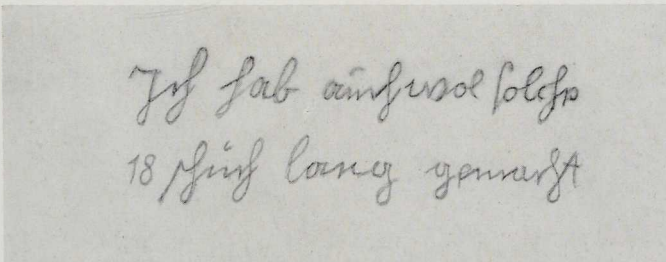 Ich hab auch wol solche
18 schuch lang gemacht